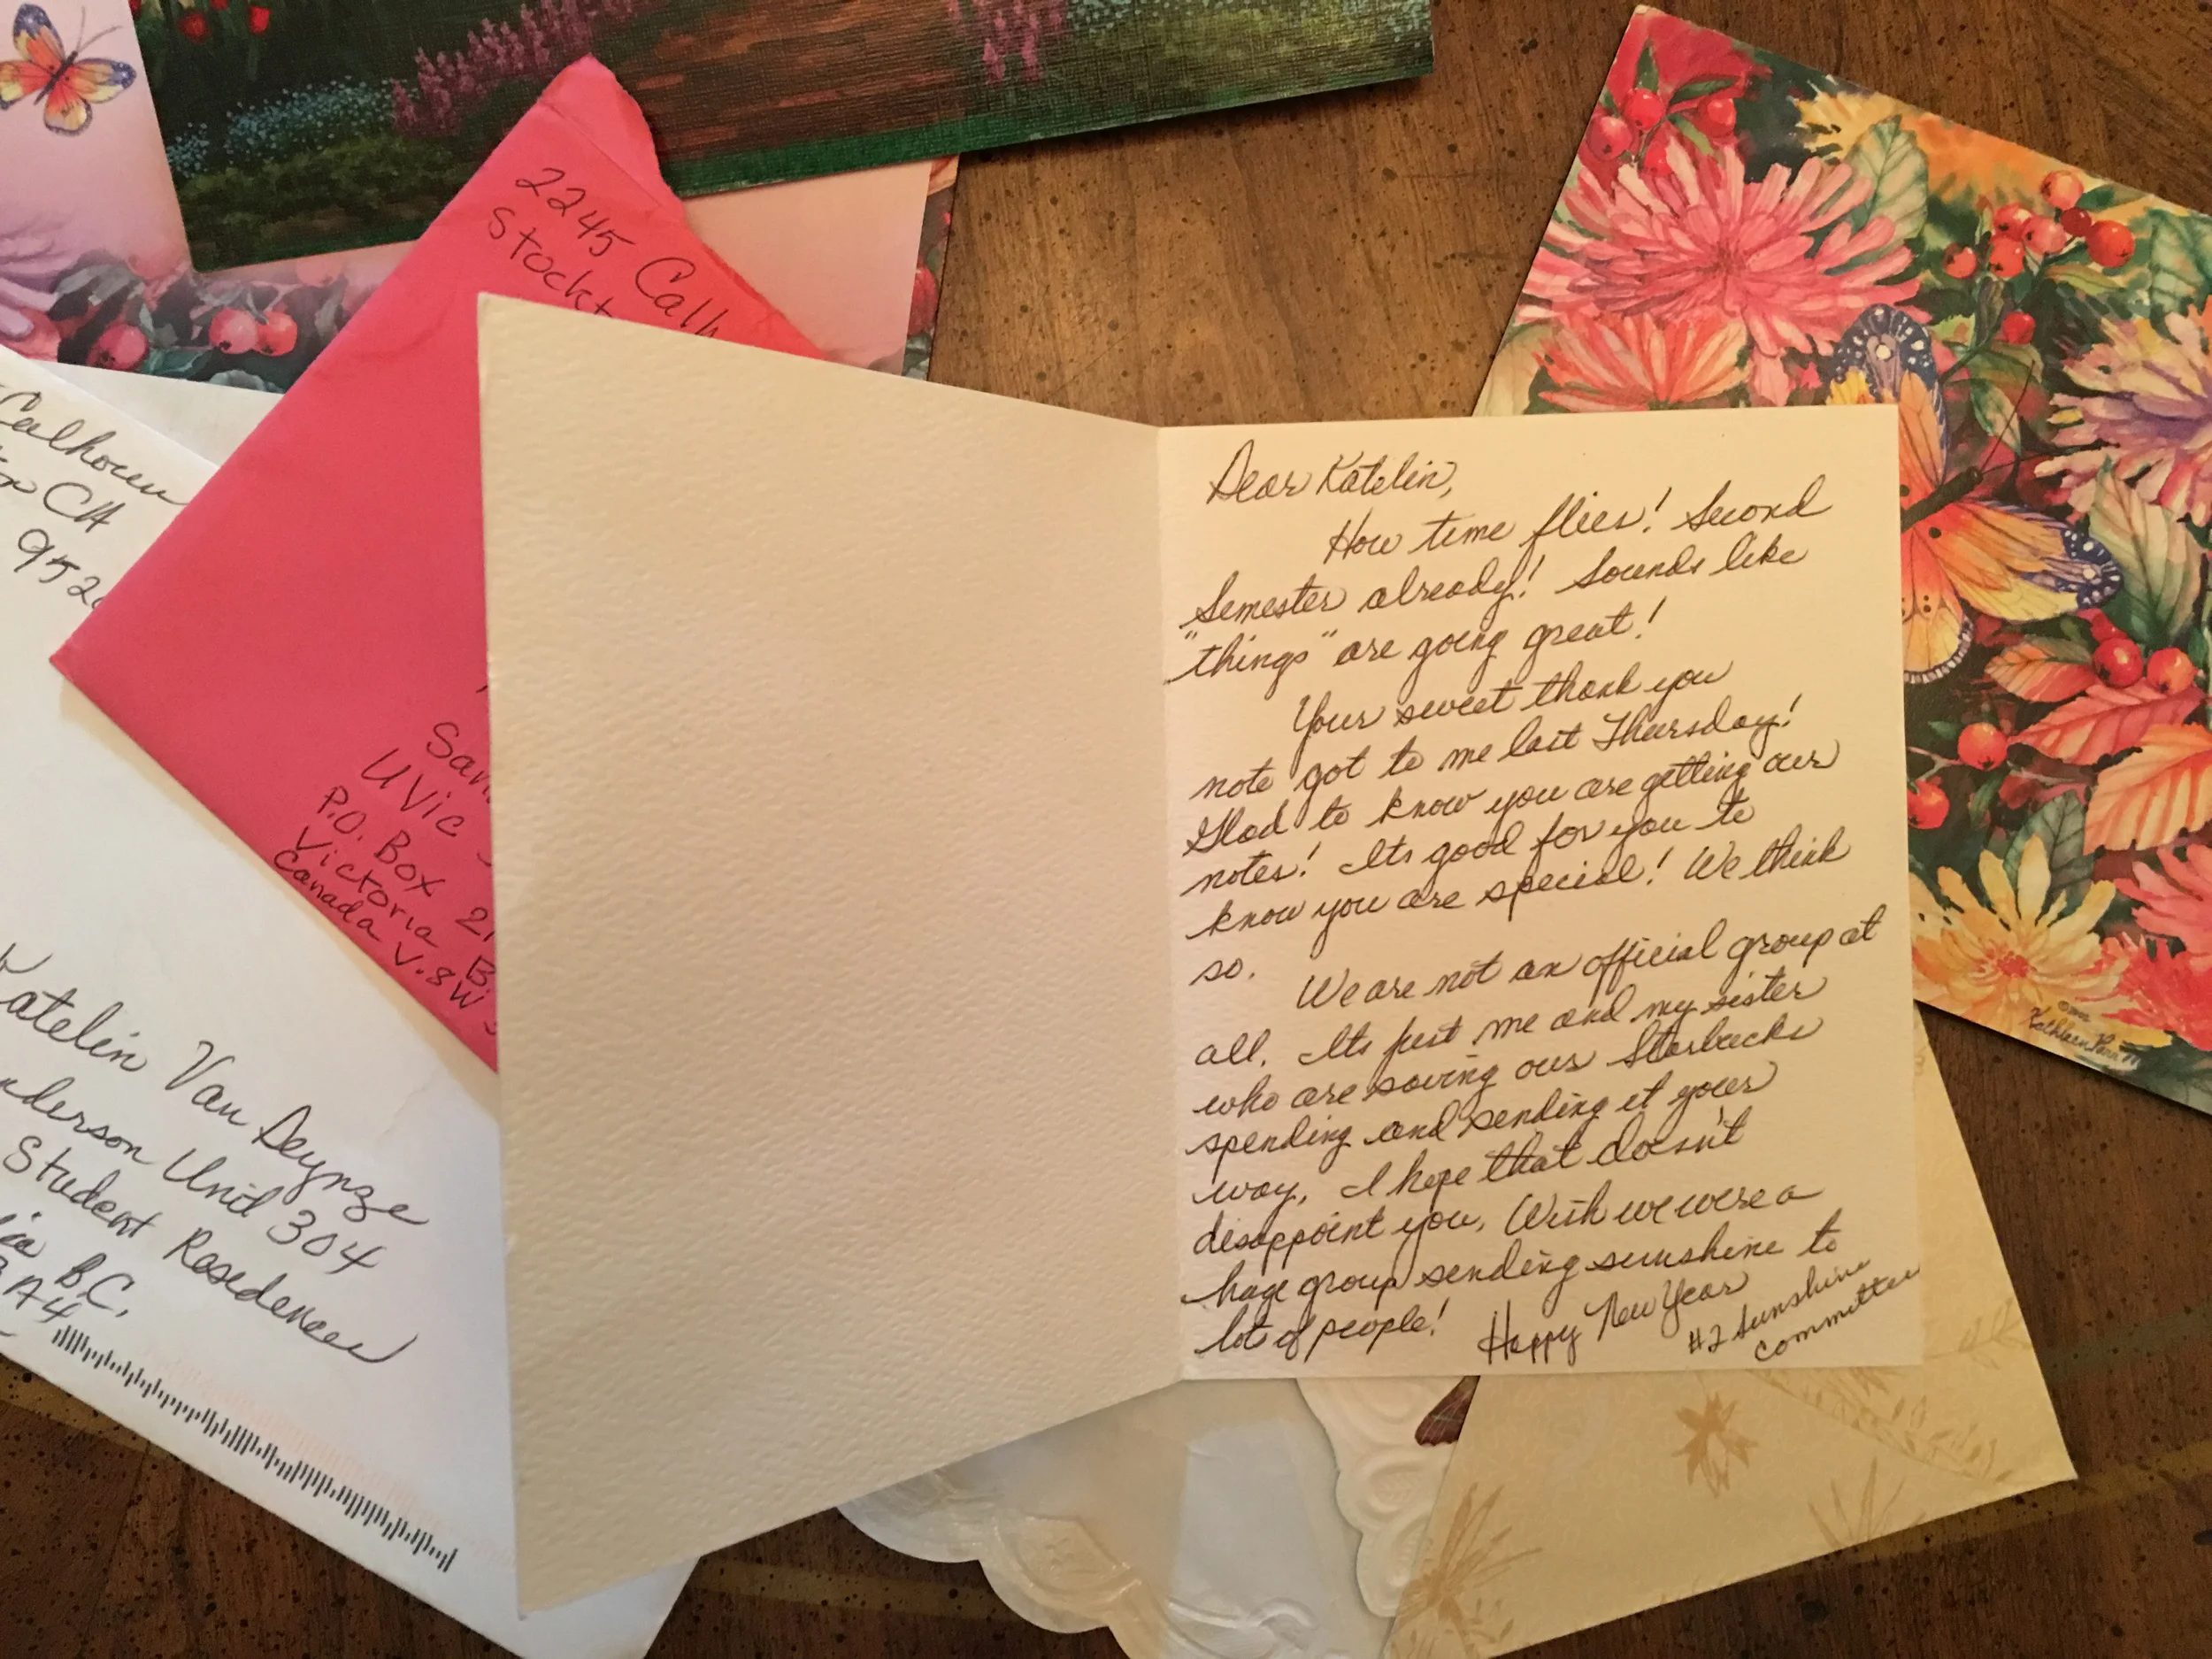 2245 Calh
Stockt
Calhoun
CA
952
San
UVic
P.O. Box 21
Victoria B.
Canada V.8W
Katelin Van Deynze
nderson Unit 304
Student Rosedence
ia B.C.
A4
Dear Katelin,
How time flies! Second
Semester already! Sounds like
"things" are going great!
Your sweet thank you
note got to me last Thursday!
Glad to know you are getting our
notes! Its good for you to
know you are special! We think
so.
We are not an official group at
all. Its just me and my sister
who are saving our Starbucks
spending and sending it your
way. I hope that doesn't
disappoint you. Wish we were a
huge group sending sunshine to
lots of people!
Happy New Year
#2 Sunshine
committee